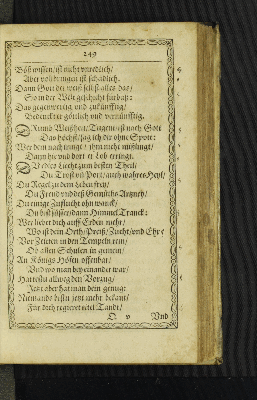 249
Böß wissen / ist nicht verweißlich /
Aber vollbringen ist schädlich.
Dann Gott der weiß selbst alles das /
So in der Welt geschicht fürbaß:
Das gegenwertig und zukünfftig /
Bedencket er göttlich und vernünfftig.
Drumb Weißheit / Tugend ist nach Gott
Das höchst / sag ich dir ohne Spott:
Wer dem nach ringt / ihm nicht mißlingt /
Dann hie und dort er Lob erringt.
O Edles Liecht zum besten Theil /
Du Trost und Port / auch wahres Heyl /
Du Regel zu dem Leben frey /
Du Freud und deß Gemüths Artzney /
Du einige Zuflucht ohn wanck /
Du bist süsser / dann Himmel Tranck:
Wer liebet dich auff Erden mehr /
Wo ist dein Orth / Preiß / Zucht / und Ehr?
Vor Zeiten in den Tempeln rein /
Ob allen Schulen in gemein /
An Königs Höfen offenbar /
Und wo man bey einander war /
Hattestu allweg den Vorzug /
Jetzt aber hat man dein genug:
Niemands bistu jetzt mehr bekant /
Für dich regieret eitel Tandt /
Q v Und